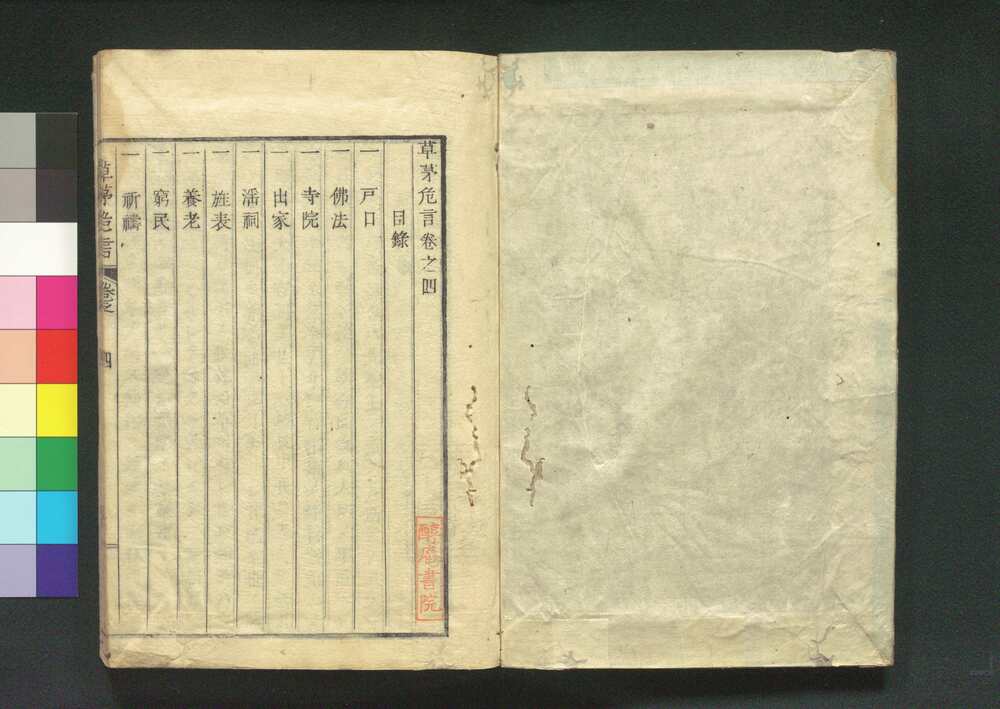 草茅危言卷之四
目錄
一 戸口
一 佛法
一 寺院
一 出家
一 淫祠
一 旌表
一 養老
一 窮民
一 祈禱
草茅危言 卷之四
書院